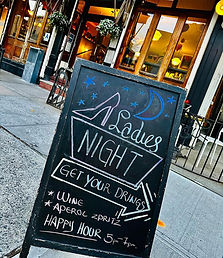 Ladies
NIGHT
GET YOUR DRINKS
* WINE
* APEROL ZPRITZ
HAPPY HOUR 5pm-7pm